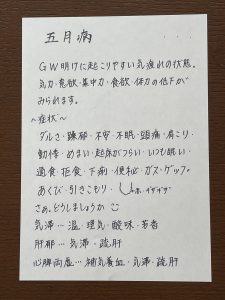 五月病
GW明けに起こりやすい気疲れの状態。
気力・意欲・集中力・食欲・体力の低下が
みられます。
~症状~
ダルさ・躁鬱・不安・不眠・頭痛・肩こり・
動悸・めまい・起床がつらい・いつも眠い・
過食・拒食・下痢・便秘・ガス・ゲップ・
あくび・引きこもり・
さあ。どうしましょうか
気滞…温・理気・酸味・芳香
肝郁…気滞・疏肝
心脾両虚…補気養血・気滞・疏肝